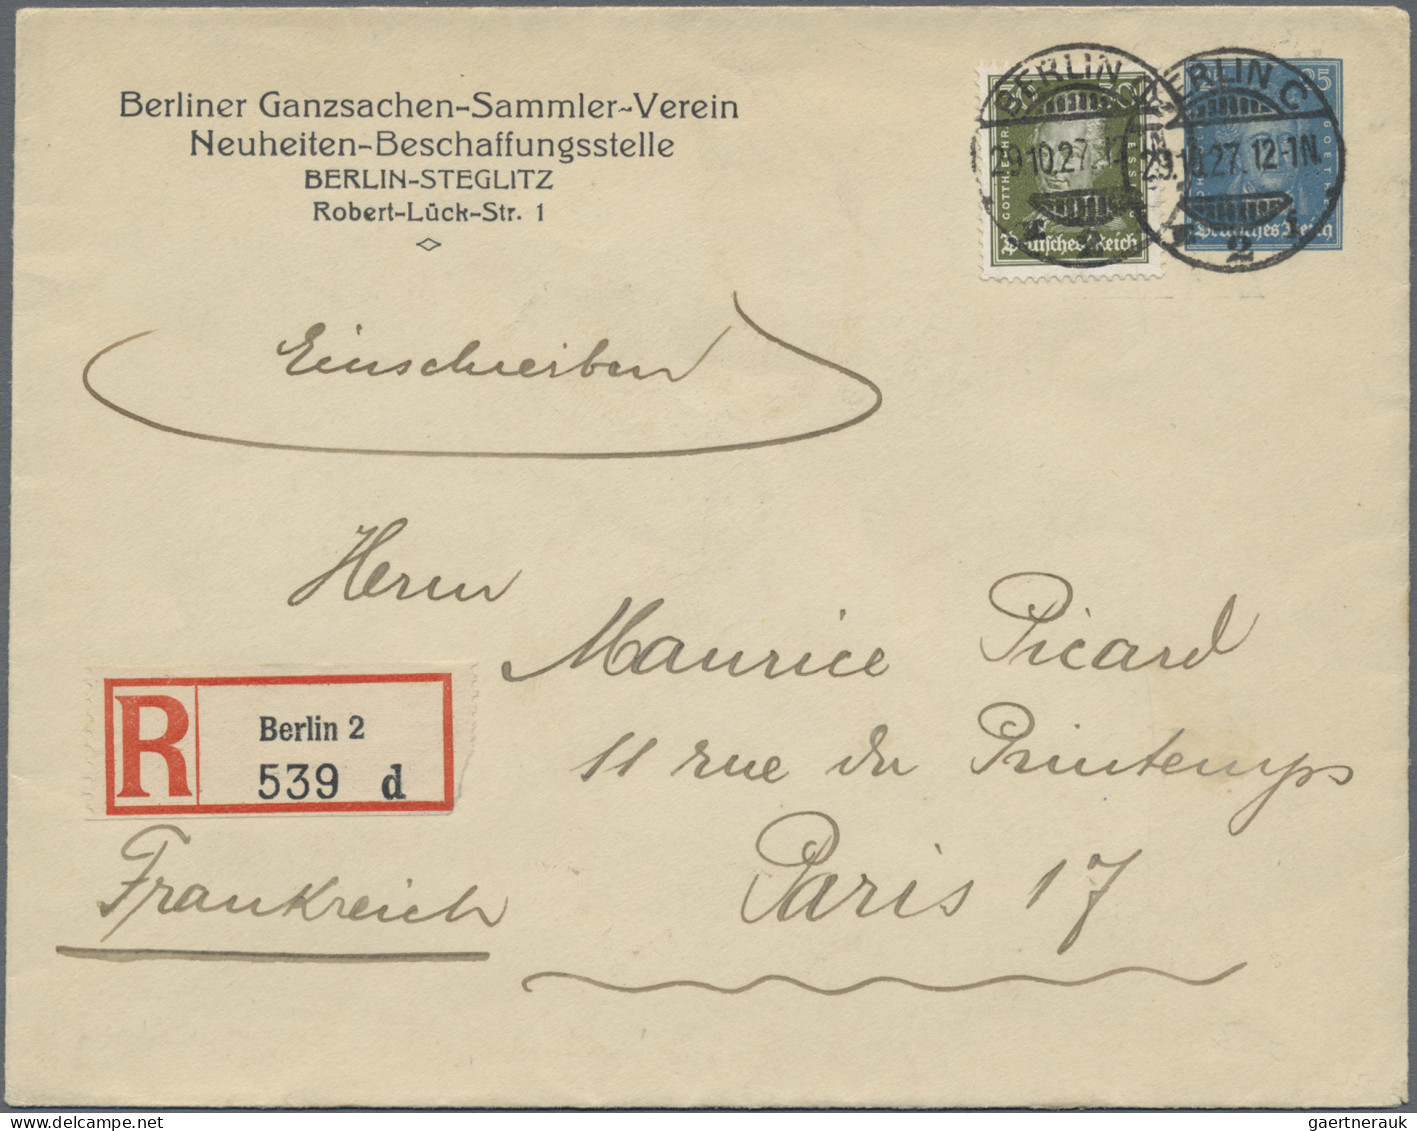 Berliner Ganzsachen-Sammler-Verein
Neuheiten-Beschaffungsstelle
BERLIN-STEGLITZ
Robert-Lück-Str. 1
BERLIN C
29.10.27.
2
BERLIN C
29.10.27. 12-1N.
2
GOTTH. EPHR. LESSING
Deutsches Reich
25
GOETHE
Deutsches Reich
Einschreiben
Herrn
Maurice Picard
11 rue du Printemps
Paris 17
R
Berlin 2
539 d
Frankreich
gaertnerauk